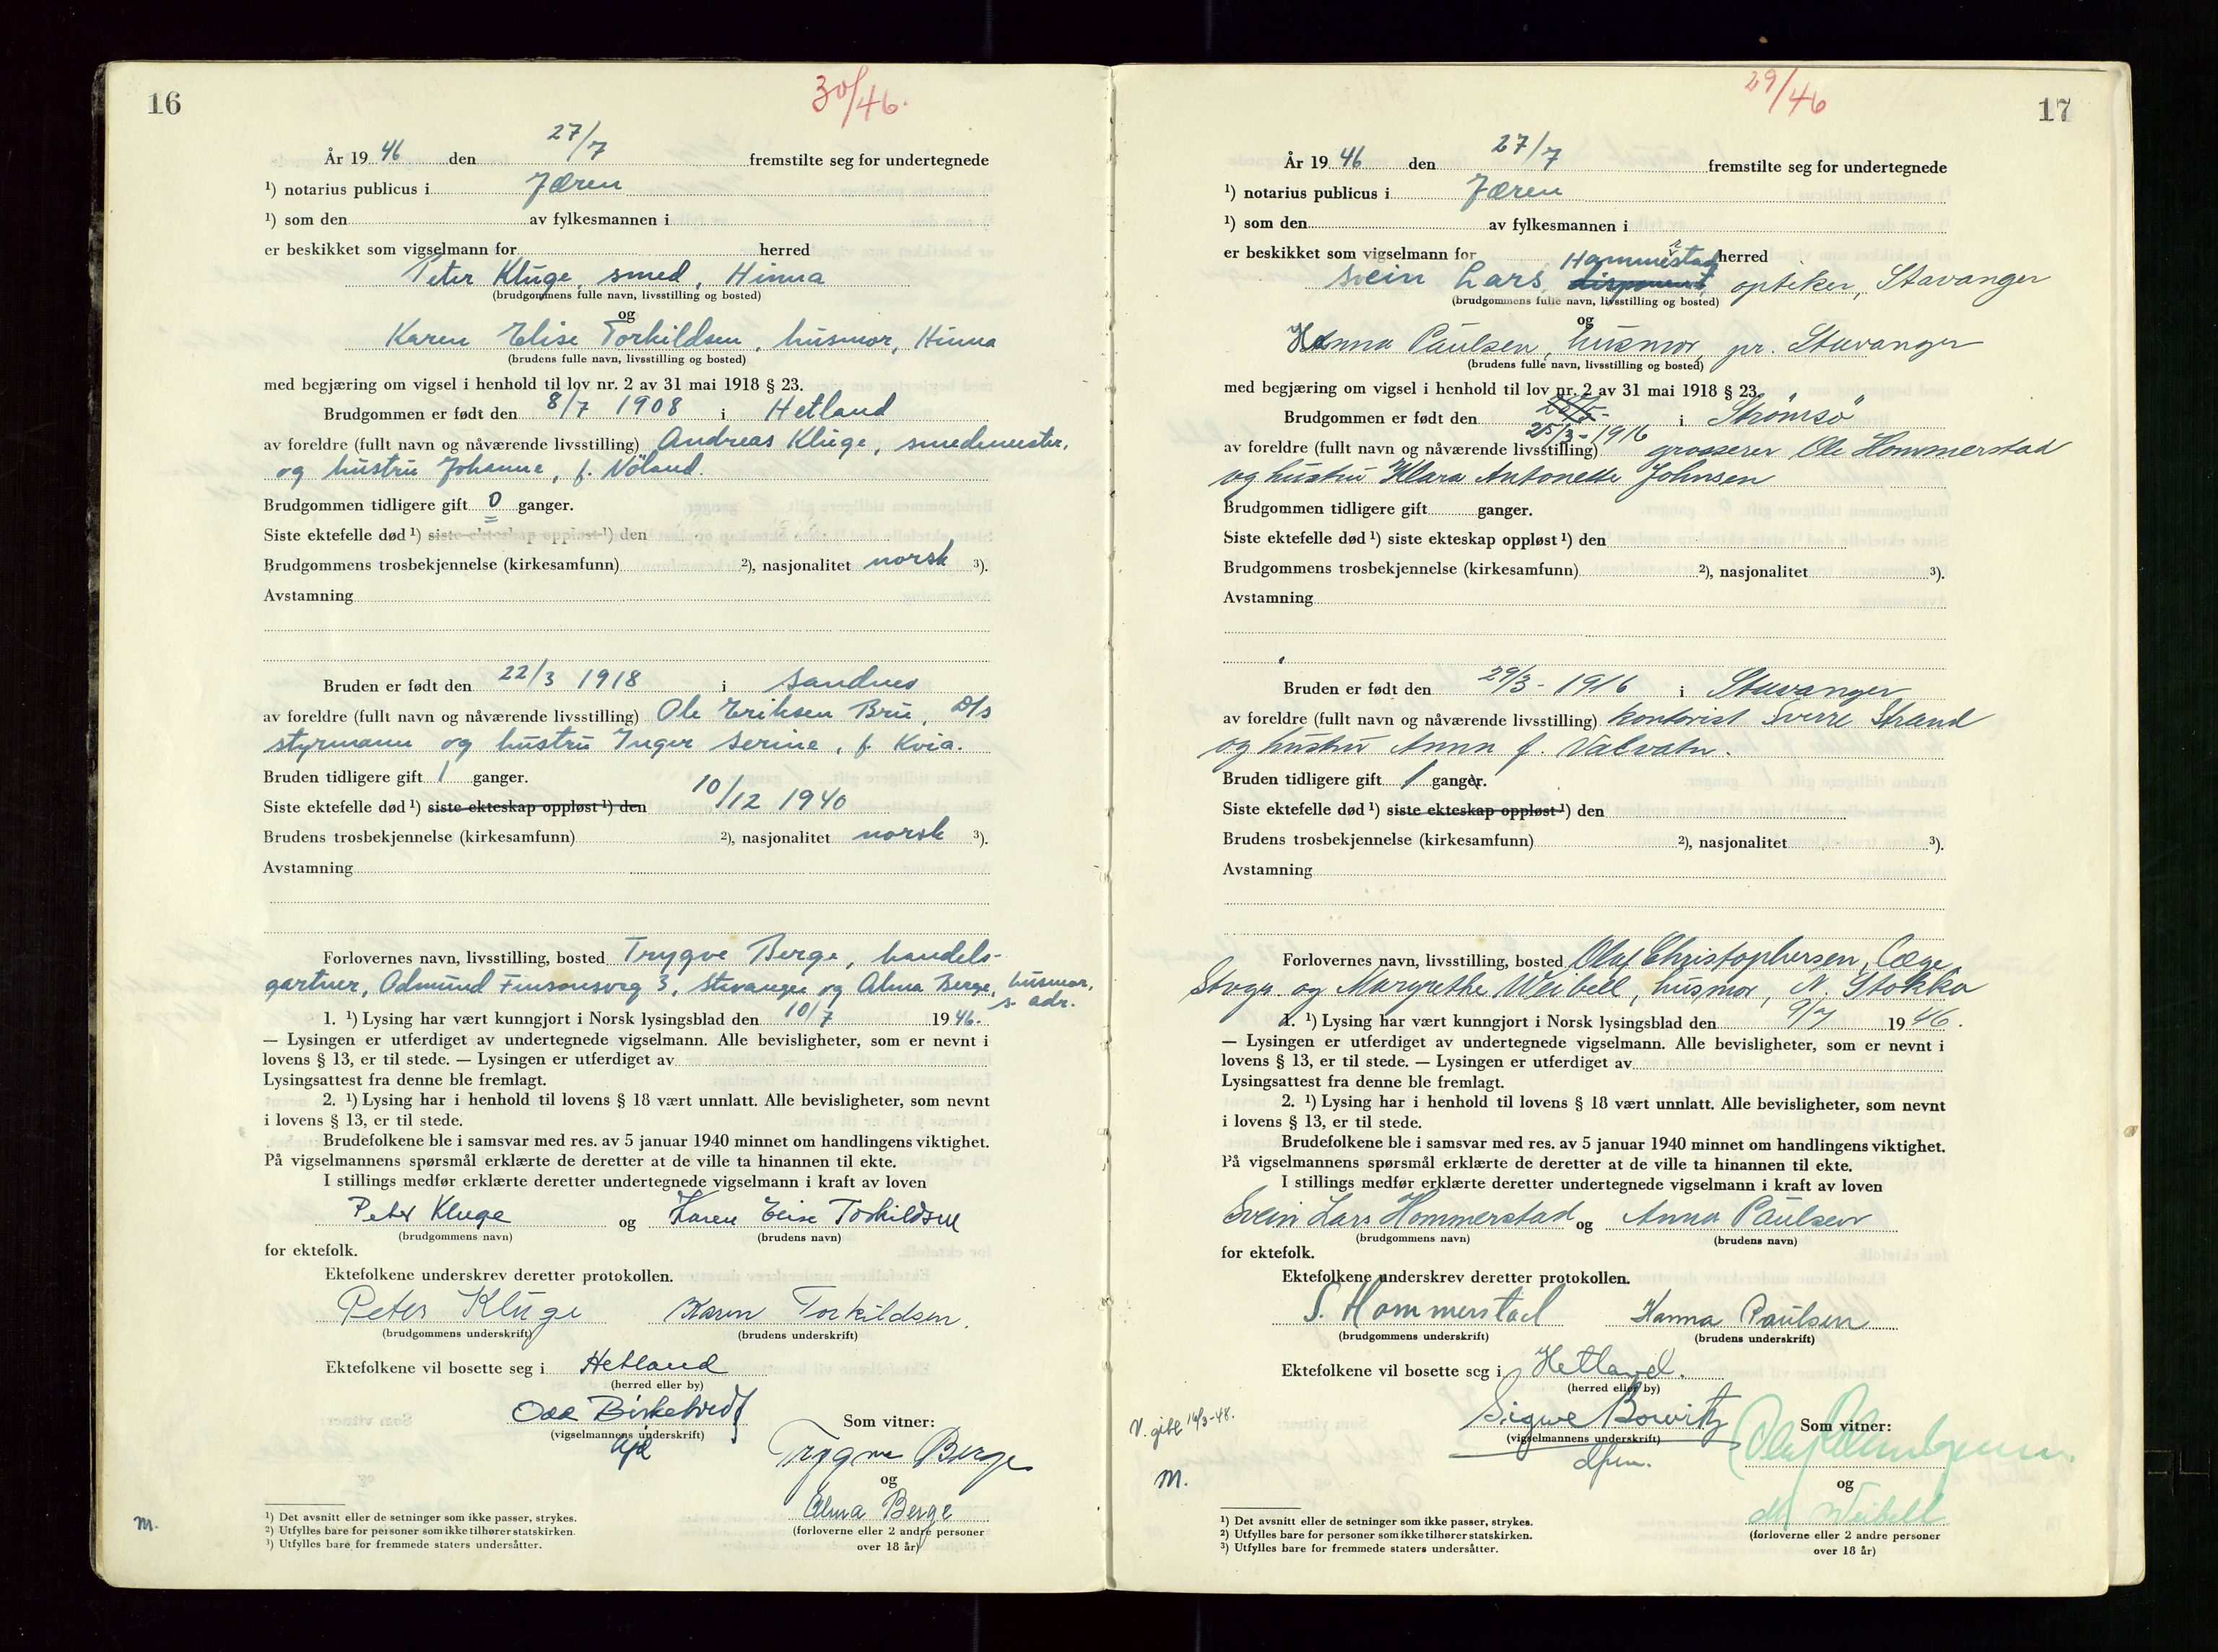 16
30/46.
År 19 46 den 27/7 fremstilte seg for undertegnede
¹) notarius publicus i Jæren
¹) som den av fylkesmannen i
er beskikket som vigselmann for herred
Peter Kluge, smed, Hinna
(brudgommens fulle navn, livsstilling og bosted)
og
Karen Elise Torkildsen, husmor, Hinna
(brudens fulle navn, livsstilling og bosted)
med begjæring om vigsel i henhold til lov nr. 2 av 31 mai 1918 § 23.
Brudgommen er født den 8/7 1908 i Hetland
av foreldre (fullt navn og nåværende livsstilling) Andreas Kluge, smedmester,
og hustru Johanne, f. Nöland.
Brudgommen tidligere gift 0 ganger.
Siste ektefelle død ¹) siste ekteskap oppløst ¹) den
Brudgommens trosbekjennelse (kirkesamfunn) ²), nasjonalitet norsk ³).
Avstamning
Bruden er født den 22/3 1918 i Sandnes
av foreldre (fullt navn og nåværende livsstilling) Ole Eriksen Bru, D/s
styrmann og hustru Inger Serine, f. Kvia.
Bruden tidligere gift 1 ganger.
Siste ektefelle død ¹) siste ekteskap oppløst ¹) den 10/12 1940
Brudens trosbekjennelse (kirkesamfunn) ²), nasjonalitet norsk ³).
Avstamning
Forlovernes navn, livsstilling, bosted Trygve Berge, handels-
gartner, Odmund Finsonsveg 3, Stavanger og Alma Berge, husmor,
s. adr.
1. ¹) Lysing har vært kunngjort i Norsk lysingsblad den 10/7 1946.
— Lysingen er utferdiget av undertegnede vigselmann. Alle bevisligheter, som er nevnt i
lovens § 13, er til stede. — Lysingen er utferdiget av
Lysingsattest fra denne ble fremlagt.
2. ¹) Lysing har i henhold til lovens § 18 vært unnlatt. Alle bevisligheter, som nevnt
i lovens § 13, er til stede.
Brudefolkene ble i samsvar med res. av 5 januar 1940 minnet om handlingens viktighet.
På vigselmannens spørsmål erklærte de deretter at de ville ta hinannen til ekte.
I stillings medfør erklærte deretter undertegnede vigselmann i kraft av loven
Peter Kluge og Karen Elise Torkildsen
(brudgommens navn) (brudens navn)
for ektefolk.
Ektefolkene underskrev deretter protokollen.
Peter Kluge Karen Torkildsen.
(brudgommens underskrift) (brudens underskrift)
Ektefolkene vil bosette seg i Hetland
(herred eller by)
Odd Birketvedt
(vigselmannens underskrift)
Som vitner:
Trygve Berge
og
Alma Berge
(forloverne eller 2 andre personer
over 18 år)
m.
¹) Det avsnitt eller de setninger som ikke passer, strykes.
²) Utfylles bare for personer som ikke tilhører statskirken.
³) Utfylles bare for fremmede staters undersåtter.
17
29/46
År 19 46 den 27/7 fremstilte seg for undertegnede
¹) notarius publicus i Jæren
¹) som den av fylkesmannen i
er beskikket som vigselmann for herred
Svein Lars Hammerstad, optiker, Stavanger
(brudgommens fulle navn, livsstilling og bosted)
og
Hanna Paulsen, husmor, pr. Stavanger
(brudens fulle navn, livsstilling og bosted)
med begjæring om vigsel i henhold til lov nr. 2 av 31 mai 1918 § 23.
Brudgommen er født den 25/3-1916 i Strømsö
av foreldre (fullt navn og nåværende livsstilling) grosserer Ole Hommerstad
og hustru Klara Antonette Johnsen
Brudgommen tidligere gift ganger.
Siste ektefelle død ¹) siste ekteskap oppløst ¹) den
Brudgommens trosbekjennelse (kirkesamfunn) ²), nasjonalitet ³).
Avstamning
Bruden er født den 29/3-1916 i Stavanger
av foreldre (fullt navn og nåværende livsstilling) kontorist Sverre Strand
og hustru Anna f. Valvatn.
Bruden tidligere gift 1 ganger.
Siste ektefelle død ¹) siste ekteskap oppløst ¹) den
Brudens trosbekjennelse (kirkesamfunn) ²), nasjonalitet ³).
Avstamning
Forlovernes navn, livsstilling, bosted Olaf Christophersen, læge,
Stvgr. og Margrethe Weibell, husmor, N. Stokka
1. ¹) Lysing har vært kunngjort i Norsk lysingsblad den 9/7 1946.
— Lysingen er utferdiget av undertegnede vigselmann. Alle bevisligheter, som er nevnt i
lovens § 13, er til stede. — Lysingen er utferdiget av
Lysingsattest fra denne ble fremlagt.
2. ¹) Lysing har i henhold til lovens § 18 vært unnlatt. Alle bevisligheter, som nevnt
i lovens § 13, er til stede.
Brudefolkene ble i samsvar med res. av 5 januar 1940 minnet om handlingens viktighet.
På vigselmannens spørsmål erklærte de deretter at de ville ta hinannen til ekte.
I stillings medfør erklærte deretter undertegnede vigselmann i kraft av loven
Svein Lars Hommerstad og Anna Paulsen
(brudgommens navn) (brudens navn)
for ektefolk.
Ektefolkene underskrev deretter protokollen.
S. Hommerstad Hanna Paulsen
(brudgommens underskrift) (brudens underskrift)
Ektefolkene vil bosette seg i Hetland.
(herred eller by)
Sigwe Bowitz
(vigselmannens underskrift)
dfm.
V. gitt 16/3-48.
m.
Som vitner:
og
Weibell
(forloverne eller 2 andre personer
over 18 år)
¹) Det avsnitt eller de setninger som ikke passer, strykes.
²) Utfylles bare for personer som ikke tilhører statskirken.
³) Utfylles bare for fremmede staters undersåtter.